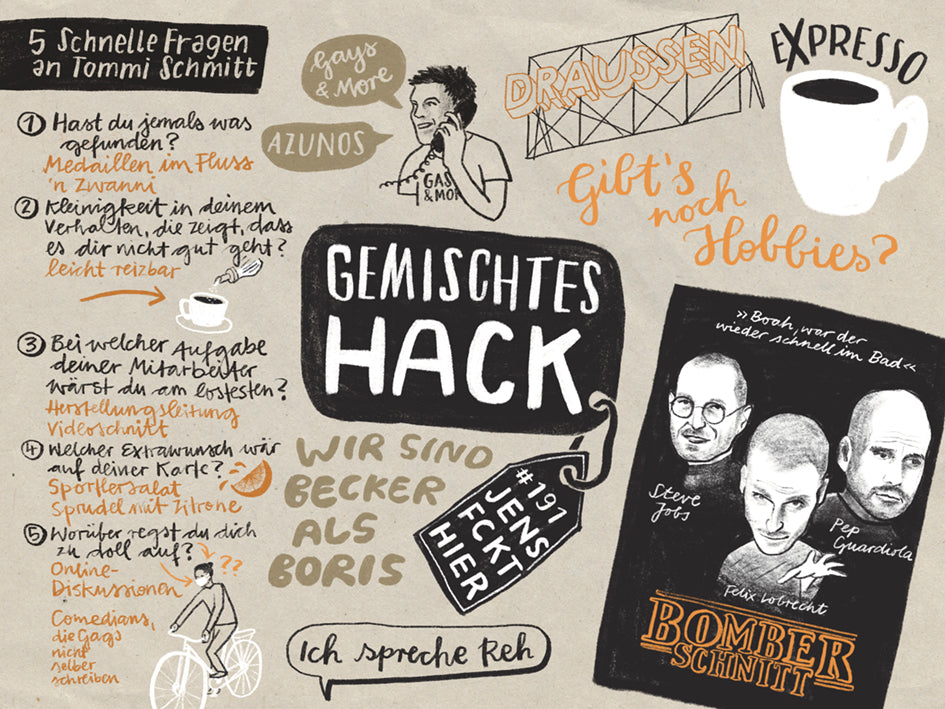 5 Schnelle Fragen
an Tommi Schmitt
① Hast du jemals was
gefunden?
Medaillen im Fluss
'n Zwanni
② Kleinigkeit in deinem
Verhalten, die zeigt, dass
es dir nicht gut geht?
leicht reizbar
③ Bei welcher Aufgabe
deiner Mitarbeiter
wärst du am lostesten?
Herstellungsleitung
Videoschnitt
④ Welcher Extrawunsch wär
auf deiner Karte?
Sportlersalat
Sprudel mit Zitrone
⑤ Worüber regst du dich
zu doll auf?
??
Online-
Diskussionen
Comedians,
die Gags
nicht
selber
schreiben
Gays
& More
AZUNOS
GAS
& MOR
DRAUSSEN
EXPRESSO
Gibt's
noch
Hobbies?
GEMISCHTES
HACK
#191
JENS
FCKT
HIER
WIR SIND
BECKER
ALS
BORIS
Ich spreche Reh
»Boah, war der
wieder schnell im Bad«
Steve
Jobs
Pep
Guardiola
Felix Lobrecht
BOMBER
SCHNITT